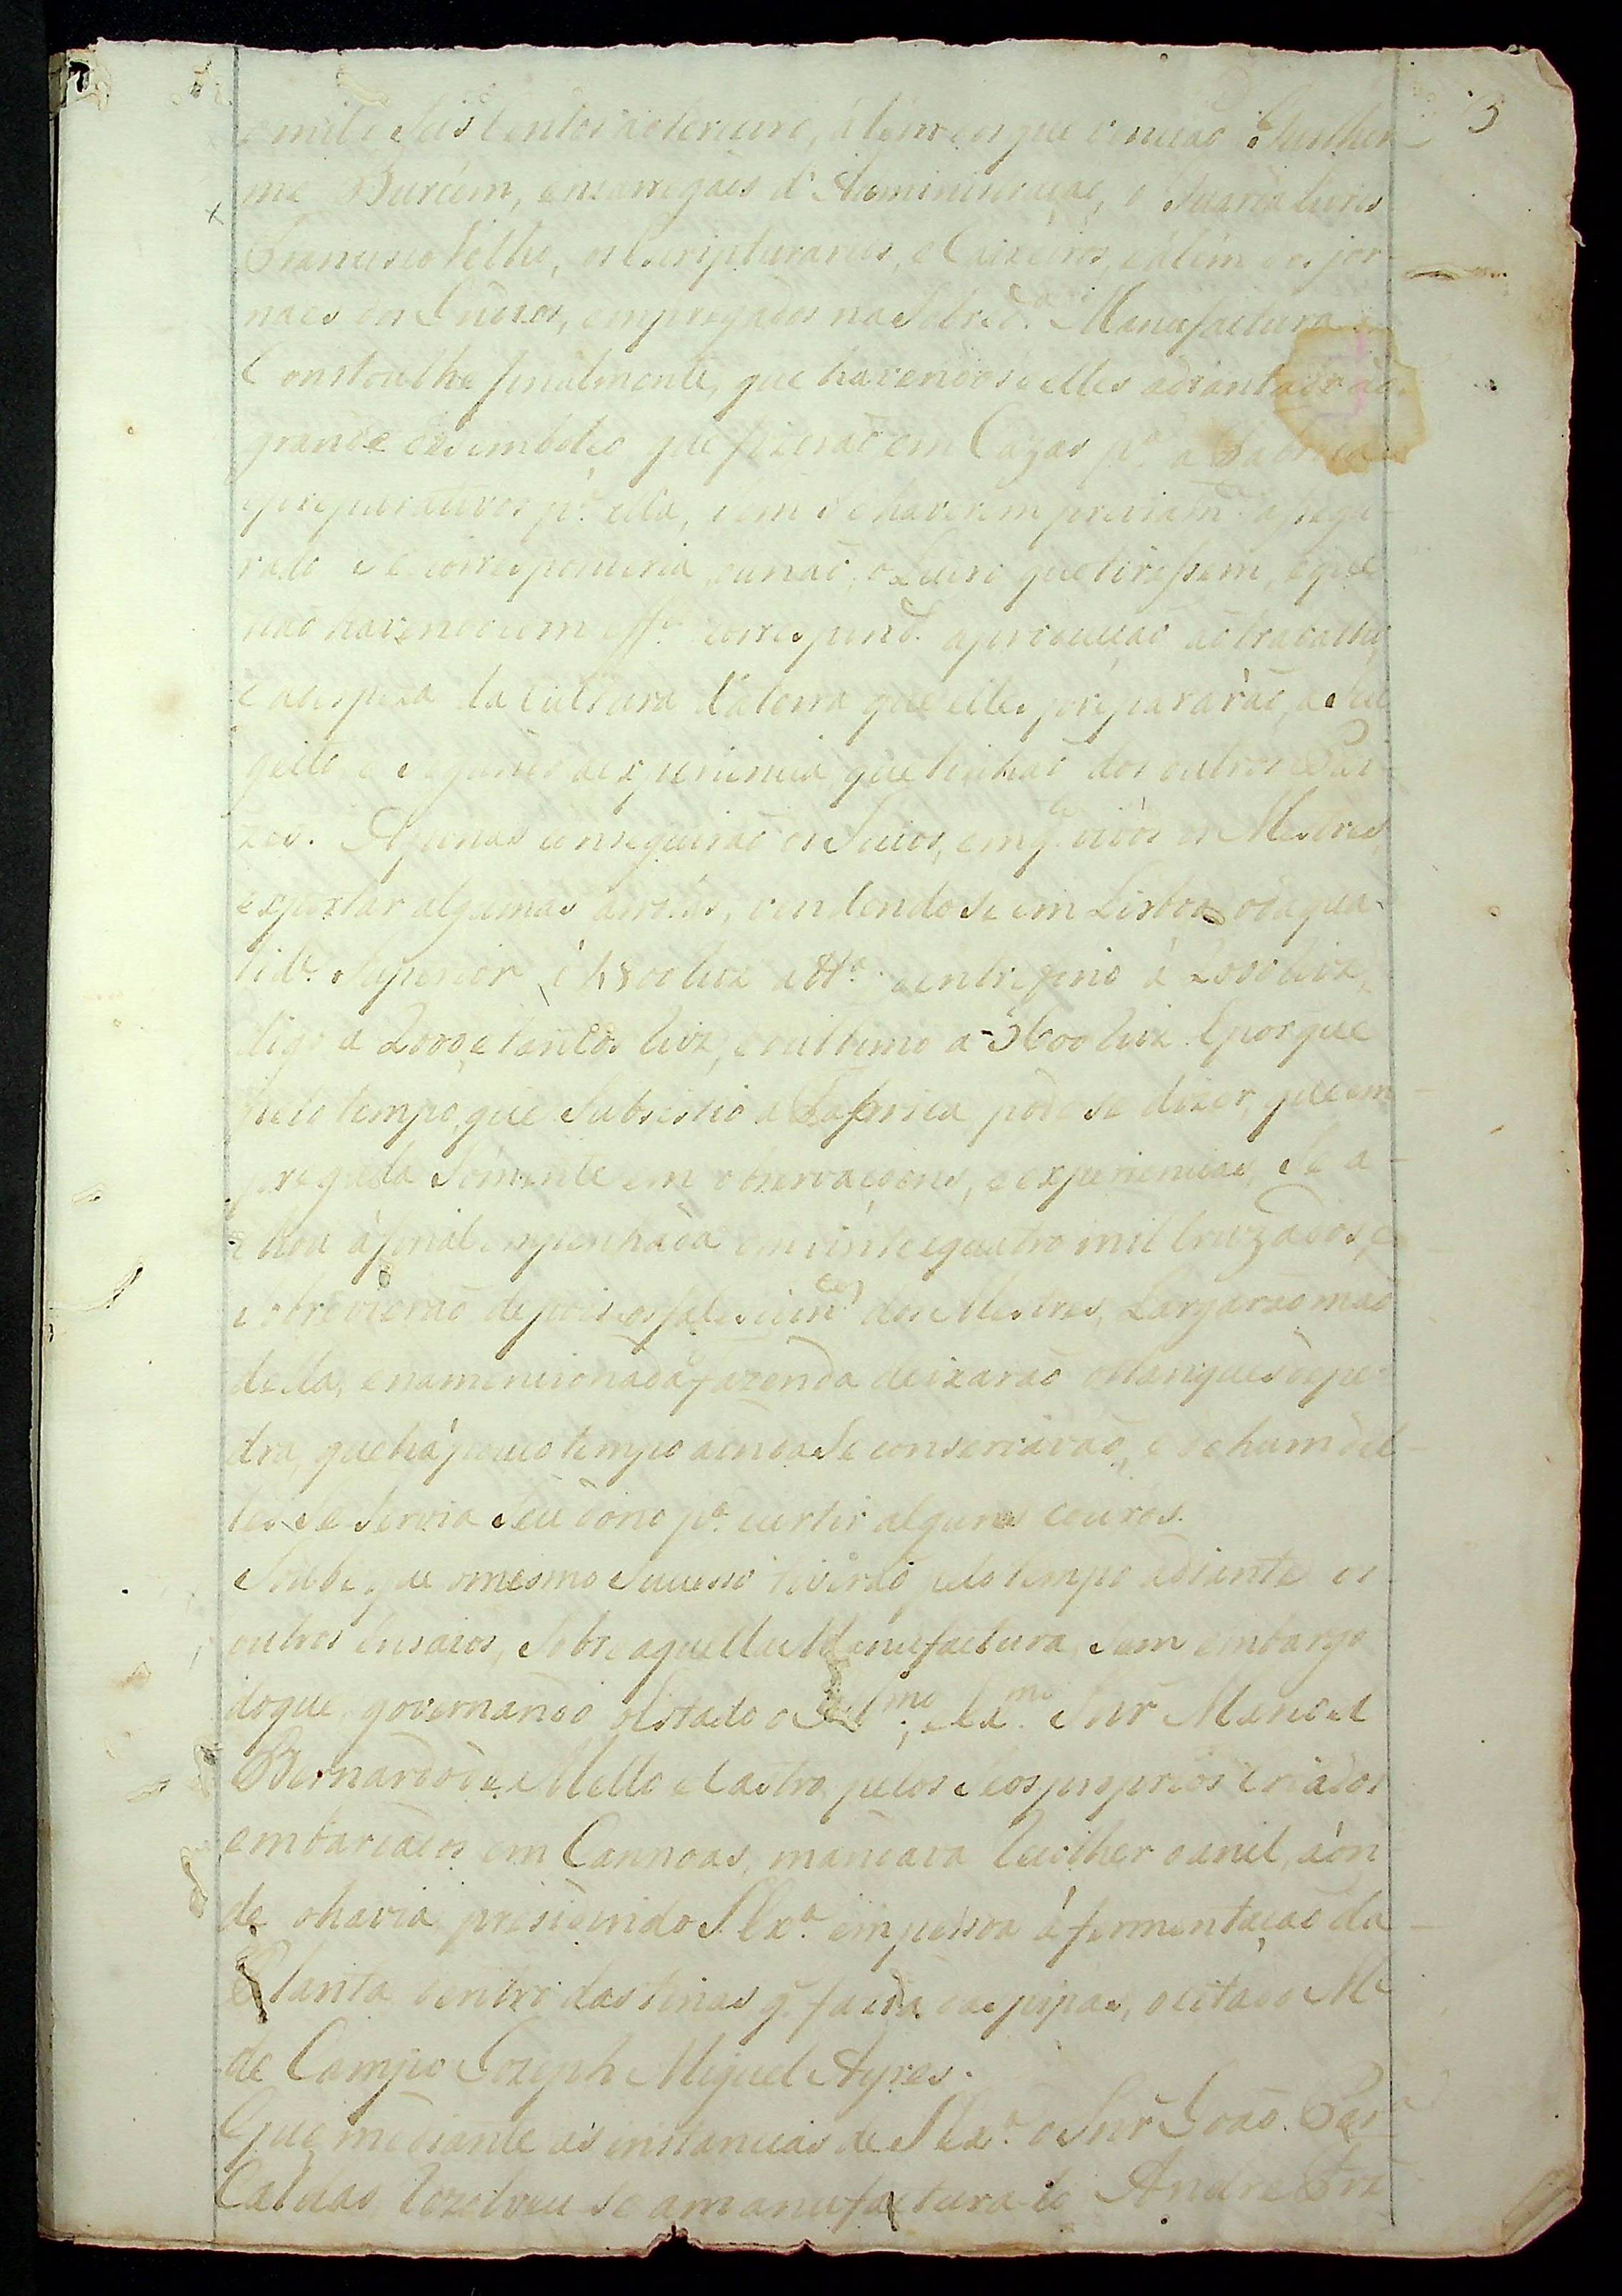 3
mil e seis centos ao terceiro, além do que vencião Guilher-
me Burcem, encarregado d'Administração, o Guarda livros
Francisco Velho, os Escripturarios, e Caixeiros, e além dos jor-
naes dos Indios, empregados na sobred.ª Manufactura.
Constoulhe finalmente, que havendose elles adiantado ao
grande dezembolço, que fizerão em Cazas p.ª a Fabrica
e preparativos p.ª ella, sem se haverem previam.e assegu-
rado se corresponderia, ou não, o Lucro que tirassem, e que
não havendo em eff.º correspond.e a producção ao trabalho,
e a despeza da Cultura da terra que elles prepararão, a seu
geito, e segundo a experiencia que tinhão dos outros Pai-
zes. Apenas conseguirão os Socios, em q.to vivos os Mestres,
exportar algumas arrobas, vendendose em Lisboa o da qua-
lid.e superior á 4800 reis a tt.ª, o entrefino á 2000 reis,
digo a 2000, e tantos reis, e o ultimo a 3600 reis. E porque
pelo tempo, que subsistio a Fabrica, póde se dizer, que em-
pregada sómente em observaçoens, e experiencias, se a-
chou á final empenhada em vinte e quatro mil Cruzados, e
sobrevierão depois os falecim.tos dos Mestres, Largarão mão
della, e na mencionada fazenda deixarão os tanques de pe-
dra, que há pouco tempo ainda se conservavão, e de hum del-
les se servia seu dono p.ª curtir alguns couros.
Soube, que o mesmo successo tiverão pelo tempo adiante os
outros Ensaios, sobre aquella Manufactura, sem embargo
do que, governando o Estado o Ill.mo, e Ex.mo Snr Manoel
Bernardo de Mello e Castro, pelos seos proprios criados
embarcados em Cannoas, mandava recolher o anil, aon-
de o havia, presidindo S. Ex.ª em pessoa á fermentação da
Planta dentro das tinas q. fazia das pipas, o citado M.e
de Campo Jozeph Miguel Ayres.
Que mediante as instancias de S. Ex.ª o Snr João Per.ª
Caldas, rezolveu se a manufactura-lo André Frz